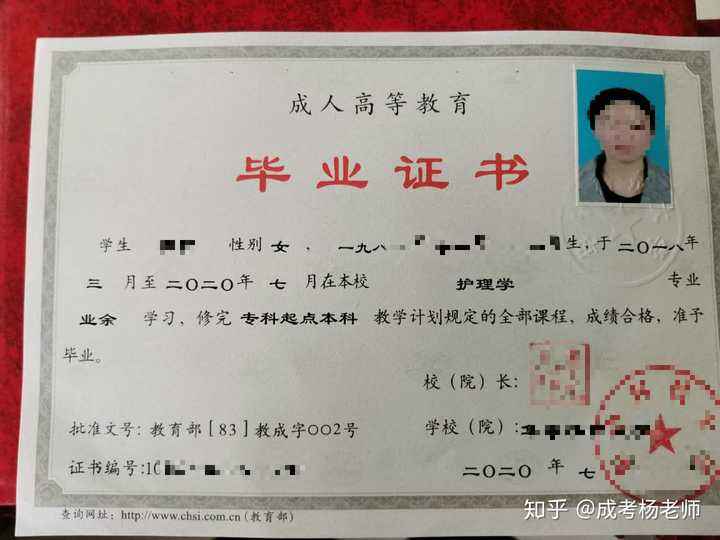 成人高等教育
毕业证书
学生 性别 女 , 一九八 生,于二〇一八年
三 月至二〇二〇年 七 月在本校 护理学 专业
业余 学习,修完 专科起点本科 教学计划规定的全部课程,成绩合格,准予
毕业。
校(院)长:
批准文号:教育部[83]教成字〇〇2号
学校(院):
证书编号:10
二〇二〇 年 七
查询网址:http://www.chsi.com.cn(教育部)
知乎 @成考杨老师